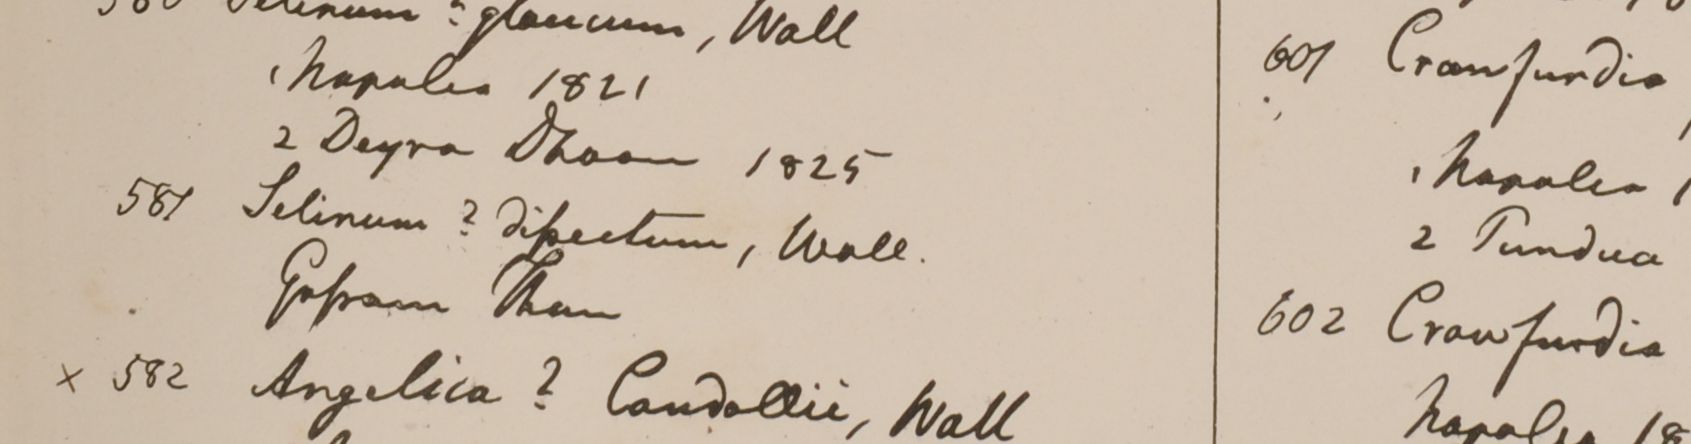 580 Selinum ? glaucum, Wall
1 Napalia 1821
2 Deyra Dhoon 1825
581 Selinum ? dißectum, Wall.
Goßain Than
x 582 Angelica ? Candollii, Wall
601 Crawfurdia
1 Napalia
2 Tundua
602 Crawfurdia
Napalia 18